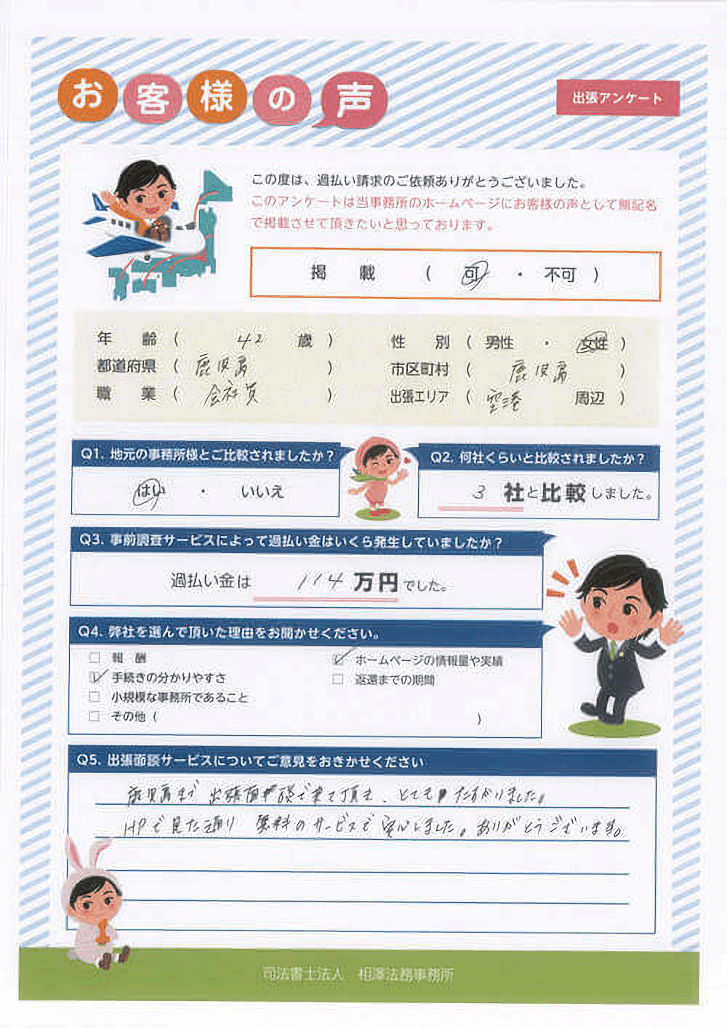 お客様の声
出張アンケート
この度は、過払い請求のご依頼ありがとうございました。
このアンケートは当事務所のホームページにお客様の声として無記名
で掲載させて頂きたいと思っております。
掲 載 ( 可 ・ 不可 )
年 齢 ( 42 歳 ) 性 別 ( 男性 ・ 女性 )
都道府県 ( 鹿児島 ) 市区町村 ( 鹿児島 )
職 業 ( 会社員 ) 出張エリア ( 空港 周辺 )
Q1. 地元の事務所様とご比較されましたか?
はい ・ いいえ
Q2. 何社くらいと比較されましたか?
3 社と比較しました。
Q3. 事前調査サービスによって過払い金はいくら発生していましたか?
過払い金は 114 万円でした。
Q4. 弊社を選んで頂いた理由をお聞かせください。
□ 報 酬 ☑ ホームページの情報量や実績
☑ 手続きの分かりやすさ □ 返還までの期間
□ 小規模な事務所であること
□ その他 ( )
Q5. 出張面談サービスについてご意見をおきかせください
鹿児島まで 出張面談で来て頂き、とても たすかりました。
HPで見た通り 無料のサービスで安心しました。ありがとうございます。
司法書士法人 相澤法務事務所